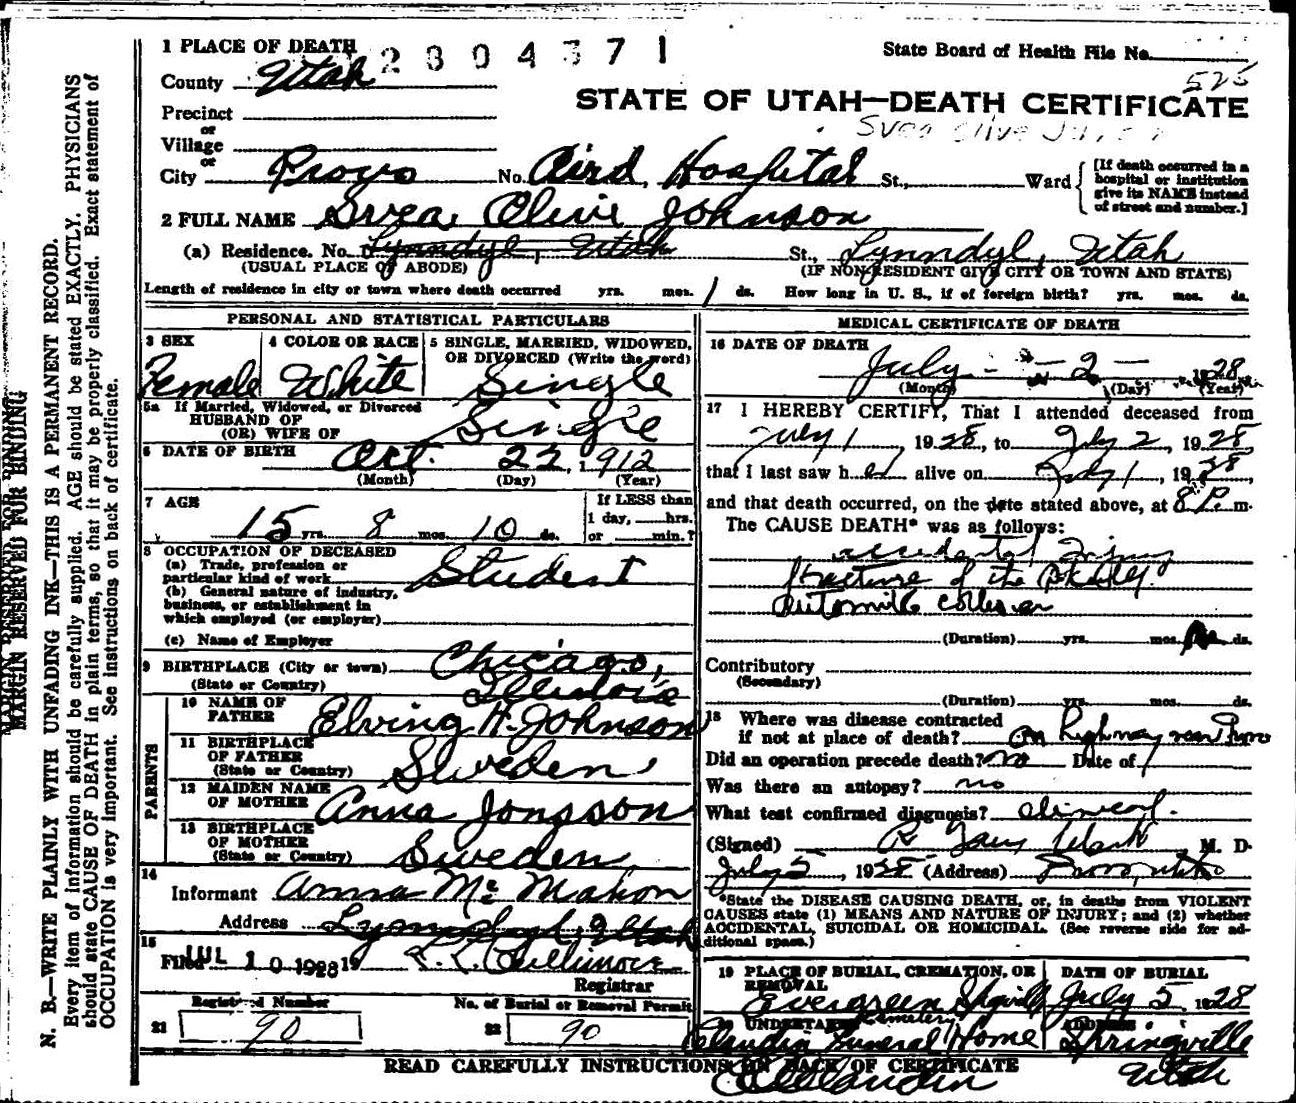 1 PLACE OF DEATH 2304371 State Board of Health File No.
County Utah 525
STATE OF UTAH—DEATH CERTIFICATE
Precinct
or
Village
or
City Provo No. Aird Hospital St., Ward [If death occurred in a hospital or institution give its NAME instead of street and number.]
2 FULL NAME Svea Olive Johnson
(a) Residence. No. Lynndyl, Utah St., Lynndyl, Utah
(USUAL PLACE OF ABODE) (IF NON-RESIDENT GIVE CITY OR TOWN AND STATE)
Length of residence in city or town where death occurred yrs. mos. 1 ds. How long in U. S., if of foreign birth? yrs. mos. ds.
PERSONAL AND STATISTICAL PARTICULARS
3 SEX Female
4 COLOR OR RACE White
5 SINGLE, MARRIED, WIDOWED, OR DIVORCED (Write the word) Single
5a If Married, Widowed, or Divorced
HUSBAND OF
(OR) WIFE OF Single
6 DATE OF BIRTH Oct. 22, 1912
(Month) (Day) (Year)
7 AGE 15 yrs. 8 mos. 10 ds.
If LESS than
1 day, hrs.
or min.?
8 OCCUPATION OF DECEASED
(a) Trade, profession or
particular kind of work Student
(b) General nature of industry,
business, or establishment in
which employed (or employer)
(c) Name of Employer
9 BIRTHPLACE (City or town) Chicago,
(State or Country) Illinois
PARENTS
10 NAME OF FATHER Elving H. Johnson
11 BIRTHPLACE OF FATHER (State or Country) Sweden
12 MAIDEN NAME OF MOTHER Anna Jonsson
13 BIRTHPLACE OF MOTHER (State or Country) Sweden
14
Informant Anna Mc Mahon
Address Lynndyl, Utah
15
Filed JUL 10 1928 19
Registrar
Registered Number No. of Burial or Removal Permit
21 90 22 90
MEDICAL CERTIFICATE OF DEATH
16 DATE OF DEATH
July 2 1928
(Month) (Day) (Year)
17 I HEREBY CERTIFY, That I attended deceased from
July 1, 1928, to July 2, 1928
that I last saw her alive on July 1, 1928,
and that death occurred, on the date stated above, at 8 P. m.
The CAUSE DEATH* was as follows:
accidental Injury
fracture of the skull
(Duration) yrs. mos. ds.
Contributory
(Secondary)
(Duration) yrs. mos. ds.
18 Where was disease contracted
if not at place of death? on highway near Provo
Did an operation precede death? no Date of
Was there an autopsy? no
What test confirmed diagnosis? clinical.
(Signed) M. D.
July 5, 1928 (Address) Provo, Utah
*State the DISEASE CAUSING DEATH, or, in deaths from VIOLENT
CAUSES state (1) MEANS AND NATURE OF INJURY; and (2) whether
ACCIDENTAL, SUICIDAL OR HOMICIDAL. (See reverse side for ad-
ditional space.)
19 PLACE OF BURIAL, CREMATION, OR REMOVAL DATE OF BURIAL
Evergreen Cemetery July 5, 1928
20 UNDERTAKER ADDRESS
Claudin Funeral Home Springville
Utah
READ CAREFULLY INSTRUCTIONS ON BACK OF CERTIFICATE
MARGIN RESERVED FOR BINDING
N. B.—WRITE PLAINLY WITH UNFADING INK—THIS IS A PERMANENT RECORD.
Every item of information should be carefully supplied. AGE should be stated EXACTLY. PHYSICIANS
should state CAUSE OF DEATH in plain terms, so that it may be properly classified. Exact statement of
OCCUPATION is very important. See instructions on back of certificate.